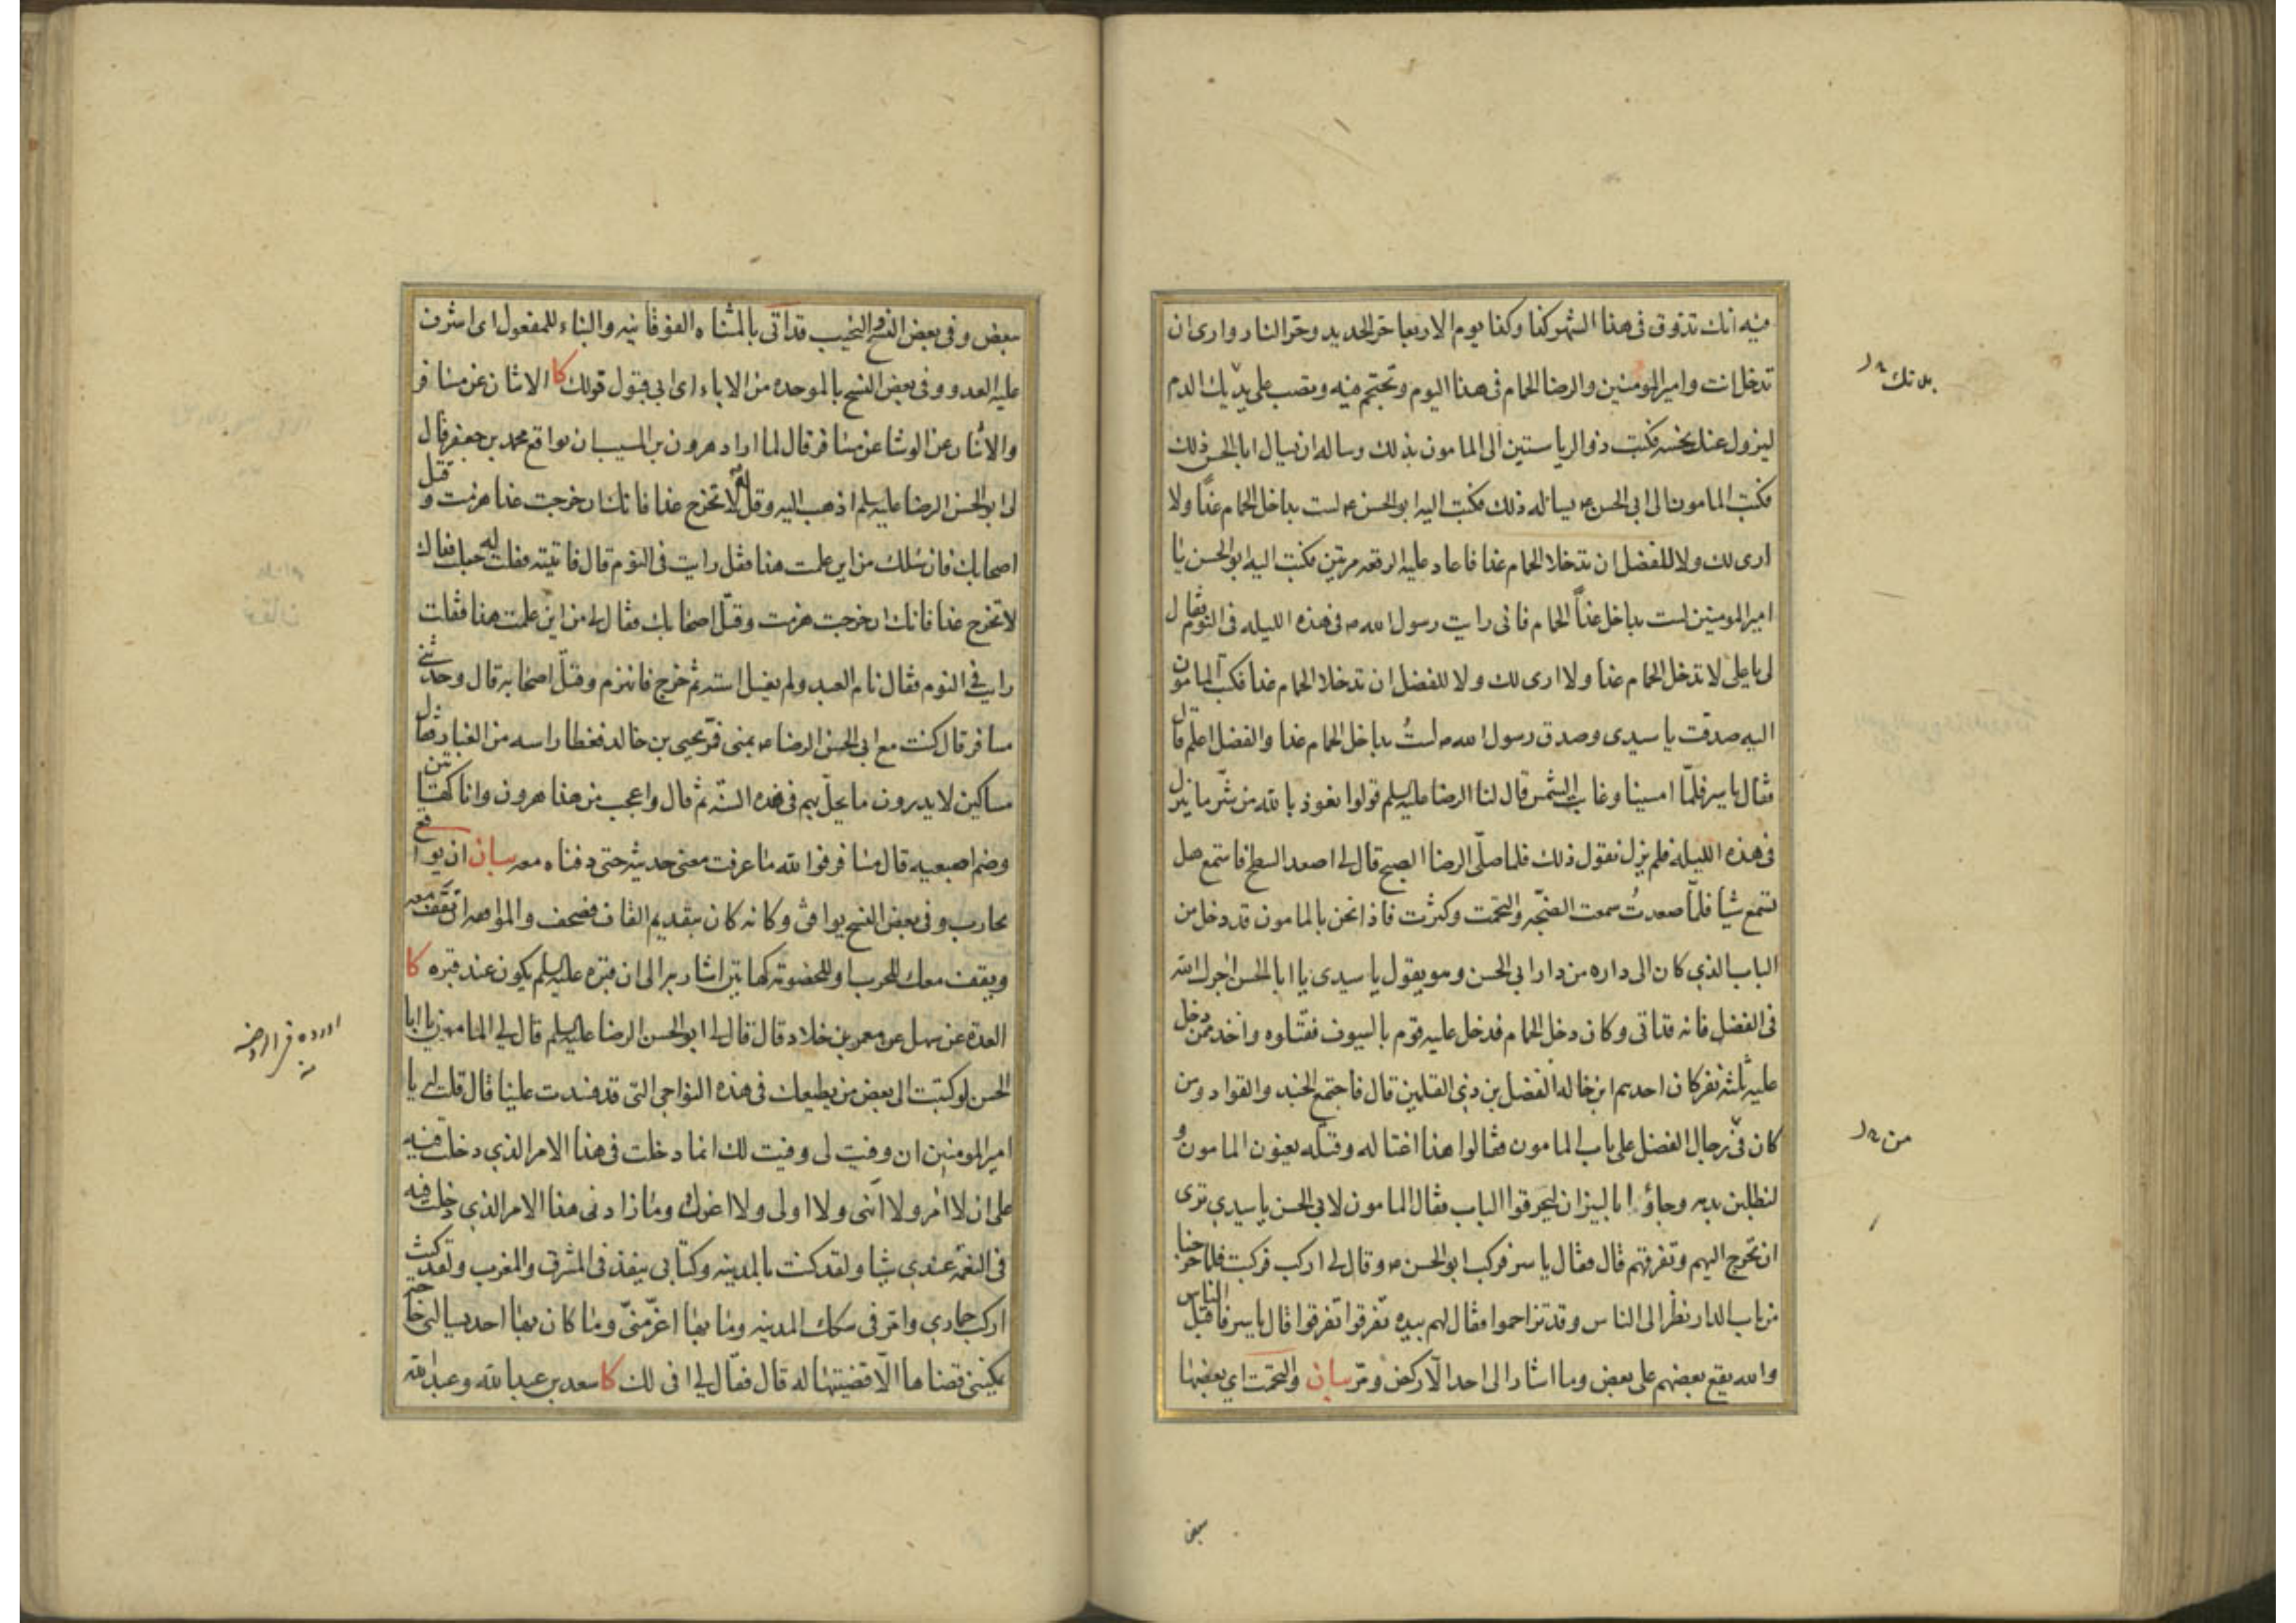 فيه انك تذوق فى هذا الشهر كذا وكذا يوم الاربعا حر الحديد وحر النار وارى ان
تدخل انت وامير المومنين والرضا الحمام فى هذا اليوم وتحتجم فيه وتصب على يديك الدم
ليزول عنك نحسه فكتب ذو الرياستين الى المامون بذلك وساله ان يسال ابا الحسن ذلك
فكتب المامون الى ابى الحسن ع يساله ذلك فكتب اليه ابو الحسن ع لست بداخل الحمام غداً ولا
ارى لك ولا للفضل ان تدخلا الحمام غدا فاعاد عليه الرقعه مرتين فكتب اليه ابو الحسن يا
امير المومنين لست بداخل غداً الحمام فانى رايت رسول الله ص فى هذه الليله فى النوم فقال
لى يا على لا تدخل الحمام غدا ولا ارى لك ولا للفضل ان تدخلا الحمام غدا فكتب المامون
اليه صدقت يا سيدى وصدق رسول الله ص لستُ بداخل الحمام غدا والفضل اعلم قال
فقال ياسر فلمّا امسينا وغابت الشمس قال لنا الرضا عليه السلم قولوا نعوذ بالله من شرّ ما ينزل
فى هذه الليله فلم يزل نقول ذلك فلما صلّى الرضا الصبح قال لى اصعد السطح فاستمع هل
تسمع شيأ فلمّا صعدتُ سمعت الضجّه والتحمت وكثرت فاذا نحن بالمامون قد دخل من
الباب الذي كان الى داره من دار ابى الحسن وهو يقول يا سيدى يا ابا الحسن اجرك الله
فى الفضل فانه قد اتى وكان دخل الحمام فدخل عليه قوم بالسيوف فقتلوه واخذ ممن دخل
عليه ثلثه نفر كان احدهم ابن خاله الفضل بن ذى القلمين قال فاجتمع الجند والقواد ومن
كان فى رجال الفضل على باب المامون فقالوا هذا اغتاله وقتله يعنون المامون و
لنطلبن بدمه وجاؤا بالنيران ليحرقوا الباب فقال المامون لابى الحسن يا سيدي ترى
ان تخرج اليهم وتفرقهم قال فقال ياسر فركب ابو الحسن ع وقال لى اركب فركبت فلما خرجنا
من باب الدار نظر الى الناس وقد تزاحموا فقال لهم بيده تفرقوا تفرقوا قال ياسر فاقبل الناس
والله يقع بعضهم على بعض وما اشار الى احد الّا ركض ومرّ بيان والتحمت اي بعضها
يديك
من
بعض
بعض وفى بعض النسخ والنحيب قد اتى بالمثناه الفوقانيه والبناء للمفعول اى اشرف
عليه العدو وفى بعض النسخ بالموحده من الاباء اى ابى قبول قولك كا الاثنان عن مسافر
والاثنان عن الوشا عن مسافر قال لما اراد هرون بن المسيب ان يواقع محمد بن جعفر قال
لى ابو الحسن الرضا عليه السلم اذهب اليه وقل له لا تخرج غدا فانك ان خرجت غدا هزمت وقتل
اصحابك فان سئلك من اين علمت هذا فقل رايت فى النوم قال فاتيته فقلت له جعلت فداك
لا تخرج غدا فانك ان خرجت هزمت وقتل اصحابك فقال لى من اين علمت هذا فقلت
رايت فى النوم فقال نام العبد ولم يغسل استه ثم خرج فانهزم وقتل اصحابه قال وحدثنى
مسافر قال كنت مع ابى الحسن الرضا ع بمنى فمرّ يحيى بن خالد فغطا راسه من الغبار فقال
مساكين لا يدرون ما يحلّ بهم فى هذه السنه ثم قال واعجب من هذا هرون وانا كهاتين
وضم اصبعيه قال مسافر فوالله ما عرفت معنى حديثه حتى دفناه معه بيان ان يواقع
يحارب وفى بعض النسخ يوافق وكانه كان بتقديم القاف فصحف والمواقفه ان تقف معه
ويقف معك للحرب او للخصومة كهاتين اشار به الى ان قبره عليه السلم يكون عند قبره كا
العدة عن سهل عن معمر بن خلاد قال قال لى ابو الحسن الرضا عليه السلم قال لى المامون يا ابا
الحسن لو كتبت الى بعض من يطيعك فى هذه النواحى التى قد فسدت علينا قال قلت له يا
امير المومنين ان وفيت لى وفيت لك انما دخلت فى هذا الامر الذي دخلت فيه
على ان لا آمر ولا انهى ولا اولى ولا اعزل وما زادنى هذا الامر الذي دخلت فيه
فى النعمه عندي شيأ ولقد كنت بالمدينه وكتابى ينفذ فى المشرق والمغرب ولقد كنت
اركب حماري وامرّ فى سكك المدينه وما بها اعزّ منّى وما كان بها احد يسالنى حاجه
يمكننى قضاها الّا قضيتها له قال فقال لى افى لك كا سعد بن عبد الله وعبد الله
اورده فى الروضه